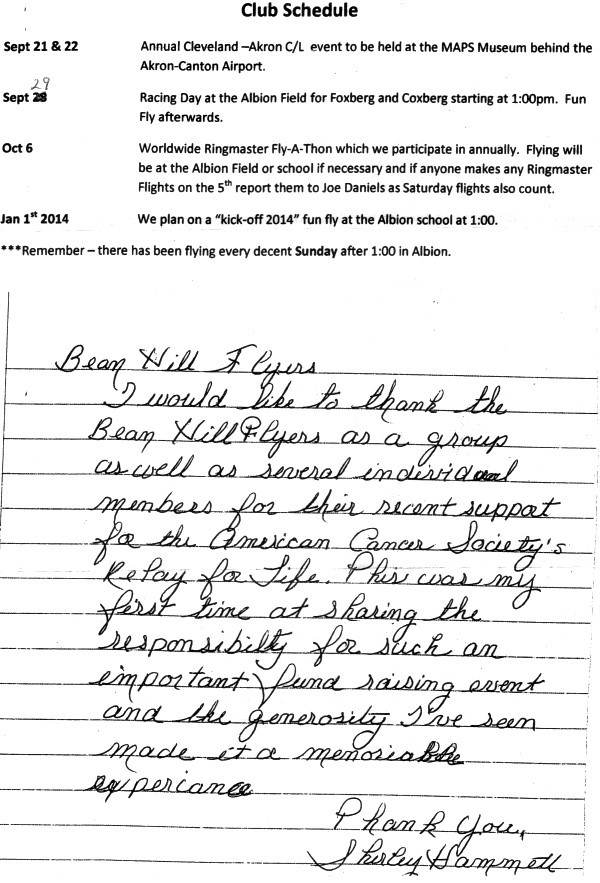 Club Schedule
Sept 21 & 22 Annual Cleveland –Akron C/L event to be held at the MAPS Museum behind the
Akron-Canton Airport.
29
Sept 28 Racing Day at the Albion Field for Foxberg and Coxberg starting at 1:00pm. Fun
Fly afterwards.
Oct 6 Worldwide Ringmaster Fly-A-Thon which we participate in annually. Flying will
be at the Albion Field or school if necessary and if anyone makes any Ringmaster
Flights on the 5th report them to Joe Daniels as Saturday flights also count.
Jan 1st 2014 We plan on a “kick-off 2014” fun fly at the Albion school at 1:00.
***Remember – there has been flying every decent Sunday after 1:00 in Albion.
Bean Hill Flyers
I would like to thank the
Bean Hill Flyers as a group
as well as several individual
members for their recent support
for the American Cancer Society's
Relay for Life. This was my
first time at sharing the
responsibilty for such an
important fund raising event
and the generosity I've seen
made it a memoriable
experiance
Thank You,
Shirley Hammett